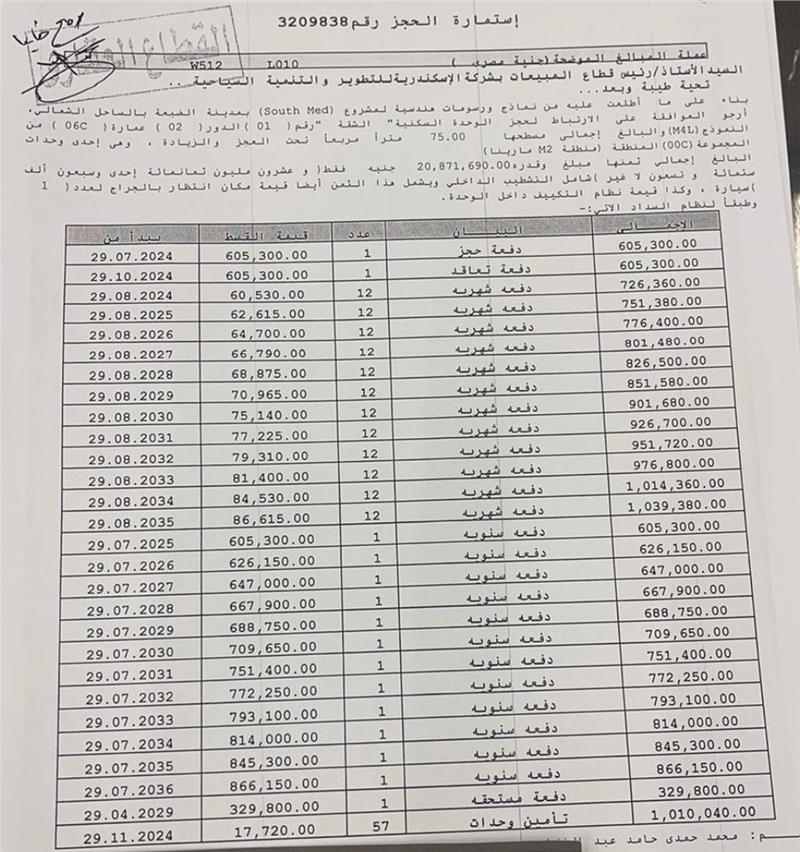 إستمارة الحجز رقم 3209838
القطاع
عملة المبالغ الموضحة (جنية مصرى ) L010 W512
السيد الأستاذ/رئيس قطاع المبيعات بشركة الإسكندرية للتطوير والتنمية السياحية ..
تحية طيبة وبعد...
بناء على ما أطلعت عليه من نماذج ورسومات هندسية لمشروع (South Med) بمدينة الضبعة بالساحل الشمالي.
أرجو الموافقة على الارتباط لحجز الوحدة السكنية" الشقة "رقم( 01 )الدور( 02 ) عمارة( 06C ) من
النموذج(M4L)والبالغ إجمالى مسطحها 75.00 متراً مربعاً تحت العجز والزيادة ، وهى إحدى وحدات
المجموعة(00C)المنطقة (منطقة M2 مارينا)
البالغ إجمالي ثمنها مبلغ وقدره20,871,690.00 جنيه فقط( و عشرون مليون ثمانمائة إحدى وسبعون ألف
ستمائة و تسعون لا غير )شامل التشطيب الداخلي ويشمل هذا الثمن أيضا قيمة مكان انتظار بالجراج لعدد( 1
)سيارة ، وكذا قيمة نظام التكييف داخل الوحدة.
وطبقاً لنظام السداد الاتي:-
الإجمالى البيان عدد قيمة القسط يبدأ من
605,300.00 دفعة حجز 1 605,300.00 29.07.2024
605,300.00 دفعة تعاقد 1 605,300.00 29.10.2024
726,360.00 دفعه شهريه 12 60,530.00 29.08.2024
751,380.00 دفعه شهريه 12 62,615.00 29.08.2025
776,400.00 دفعه شهريه 12 64,700.00 29.08.2026
801,480.00 دفعه شهريه 12 66,790.00 29.08.2027
826,500.00 دفعه شهريه 12 68,875.00 29.08.2028
851,580.00 دفعه شهريه 12 70,965.00 29.08.2029
901,680.00 دفعه شهريه 12 75,140.00 29.08.2030
926,700.00 دفعه شهريه 12 77,225.00 29.08.2031
951,720.00 دفعه شهريه 12 79,310.00 29.08.2032
976,800.00 دفعه شهريه 12 81,400.00 29.08.2033
1,014,360.00 دفعه شهريه 12 84,530.00 29.08.2034
1,039,380.00 دفعه شهريه 12 86,615.00 29.08.2035
605,300.00 دفعه سنويه 1 605,300.00 29.07.2025
626,150.00 دفعه سنويه 1 626,150.00 29.07.2026
647,000.00 دفعه سنويه 1 647,000.00 29.07.2027
667,900.00 دفعه سنويه 1 667,900.00 29.07.2028
688,750.00 دفعه سنويه 1 688,750.00 29.07.2029
709,650.00 دفعه سنويه 1 709,650.00 29.07.2030
751,400.00 دفعه سنويه 1 751,400.00 29.07.2031
772,250.00 دفعه سنويه 1 772,250.00 29.07.2032
793,100.00 دفعه سنويه 1 793,100.00 29.07.2033
814,000.00 دفعه سنويه 1 814,000.00 29.07.2034
845,300.00 دفعه سنويه 1 845,300.00 29.07.2035
866,150.00 دفعه سنويه 1 866,150.00 29.07.2036
329,800.00 دفعة مستحقه 1 329,800.00 29.04.2029
1,010,040.00 تأمين وحدات 57 17,720.00 29.11.2024
م: محمد حمدى حامد عبد